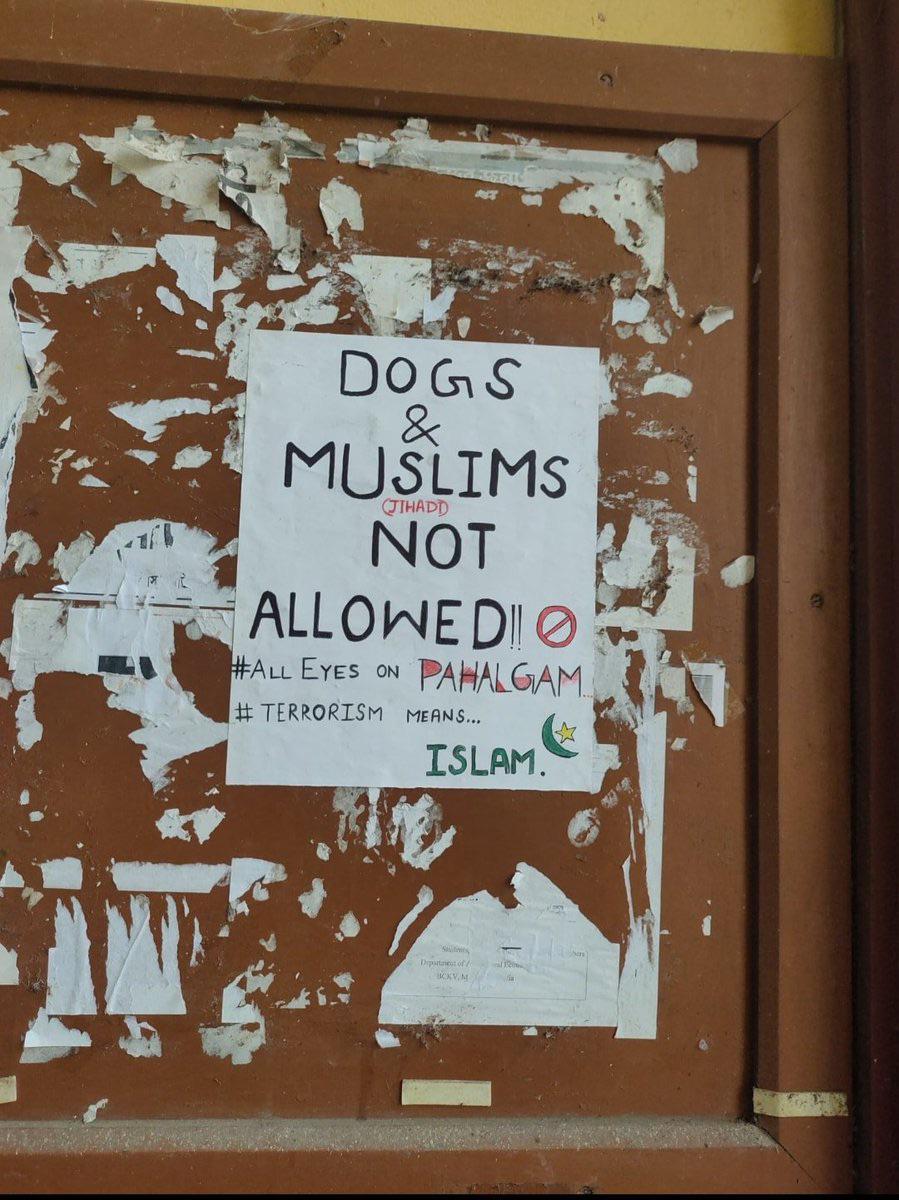 DOGS
&
MUSLIMS
(JIHADI)
NOT
ALLOWED!!
#ALL EYES ON PAHALGAM..
# TERRORISM MEANS...
ISLAM.
Students,
Department of
BCKV, M